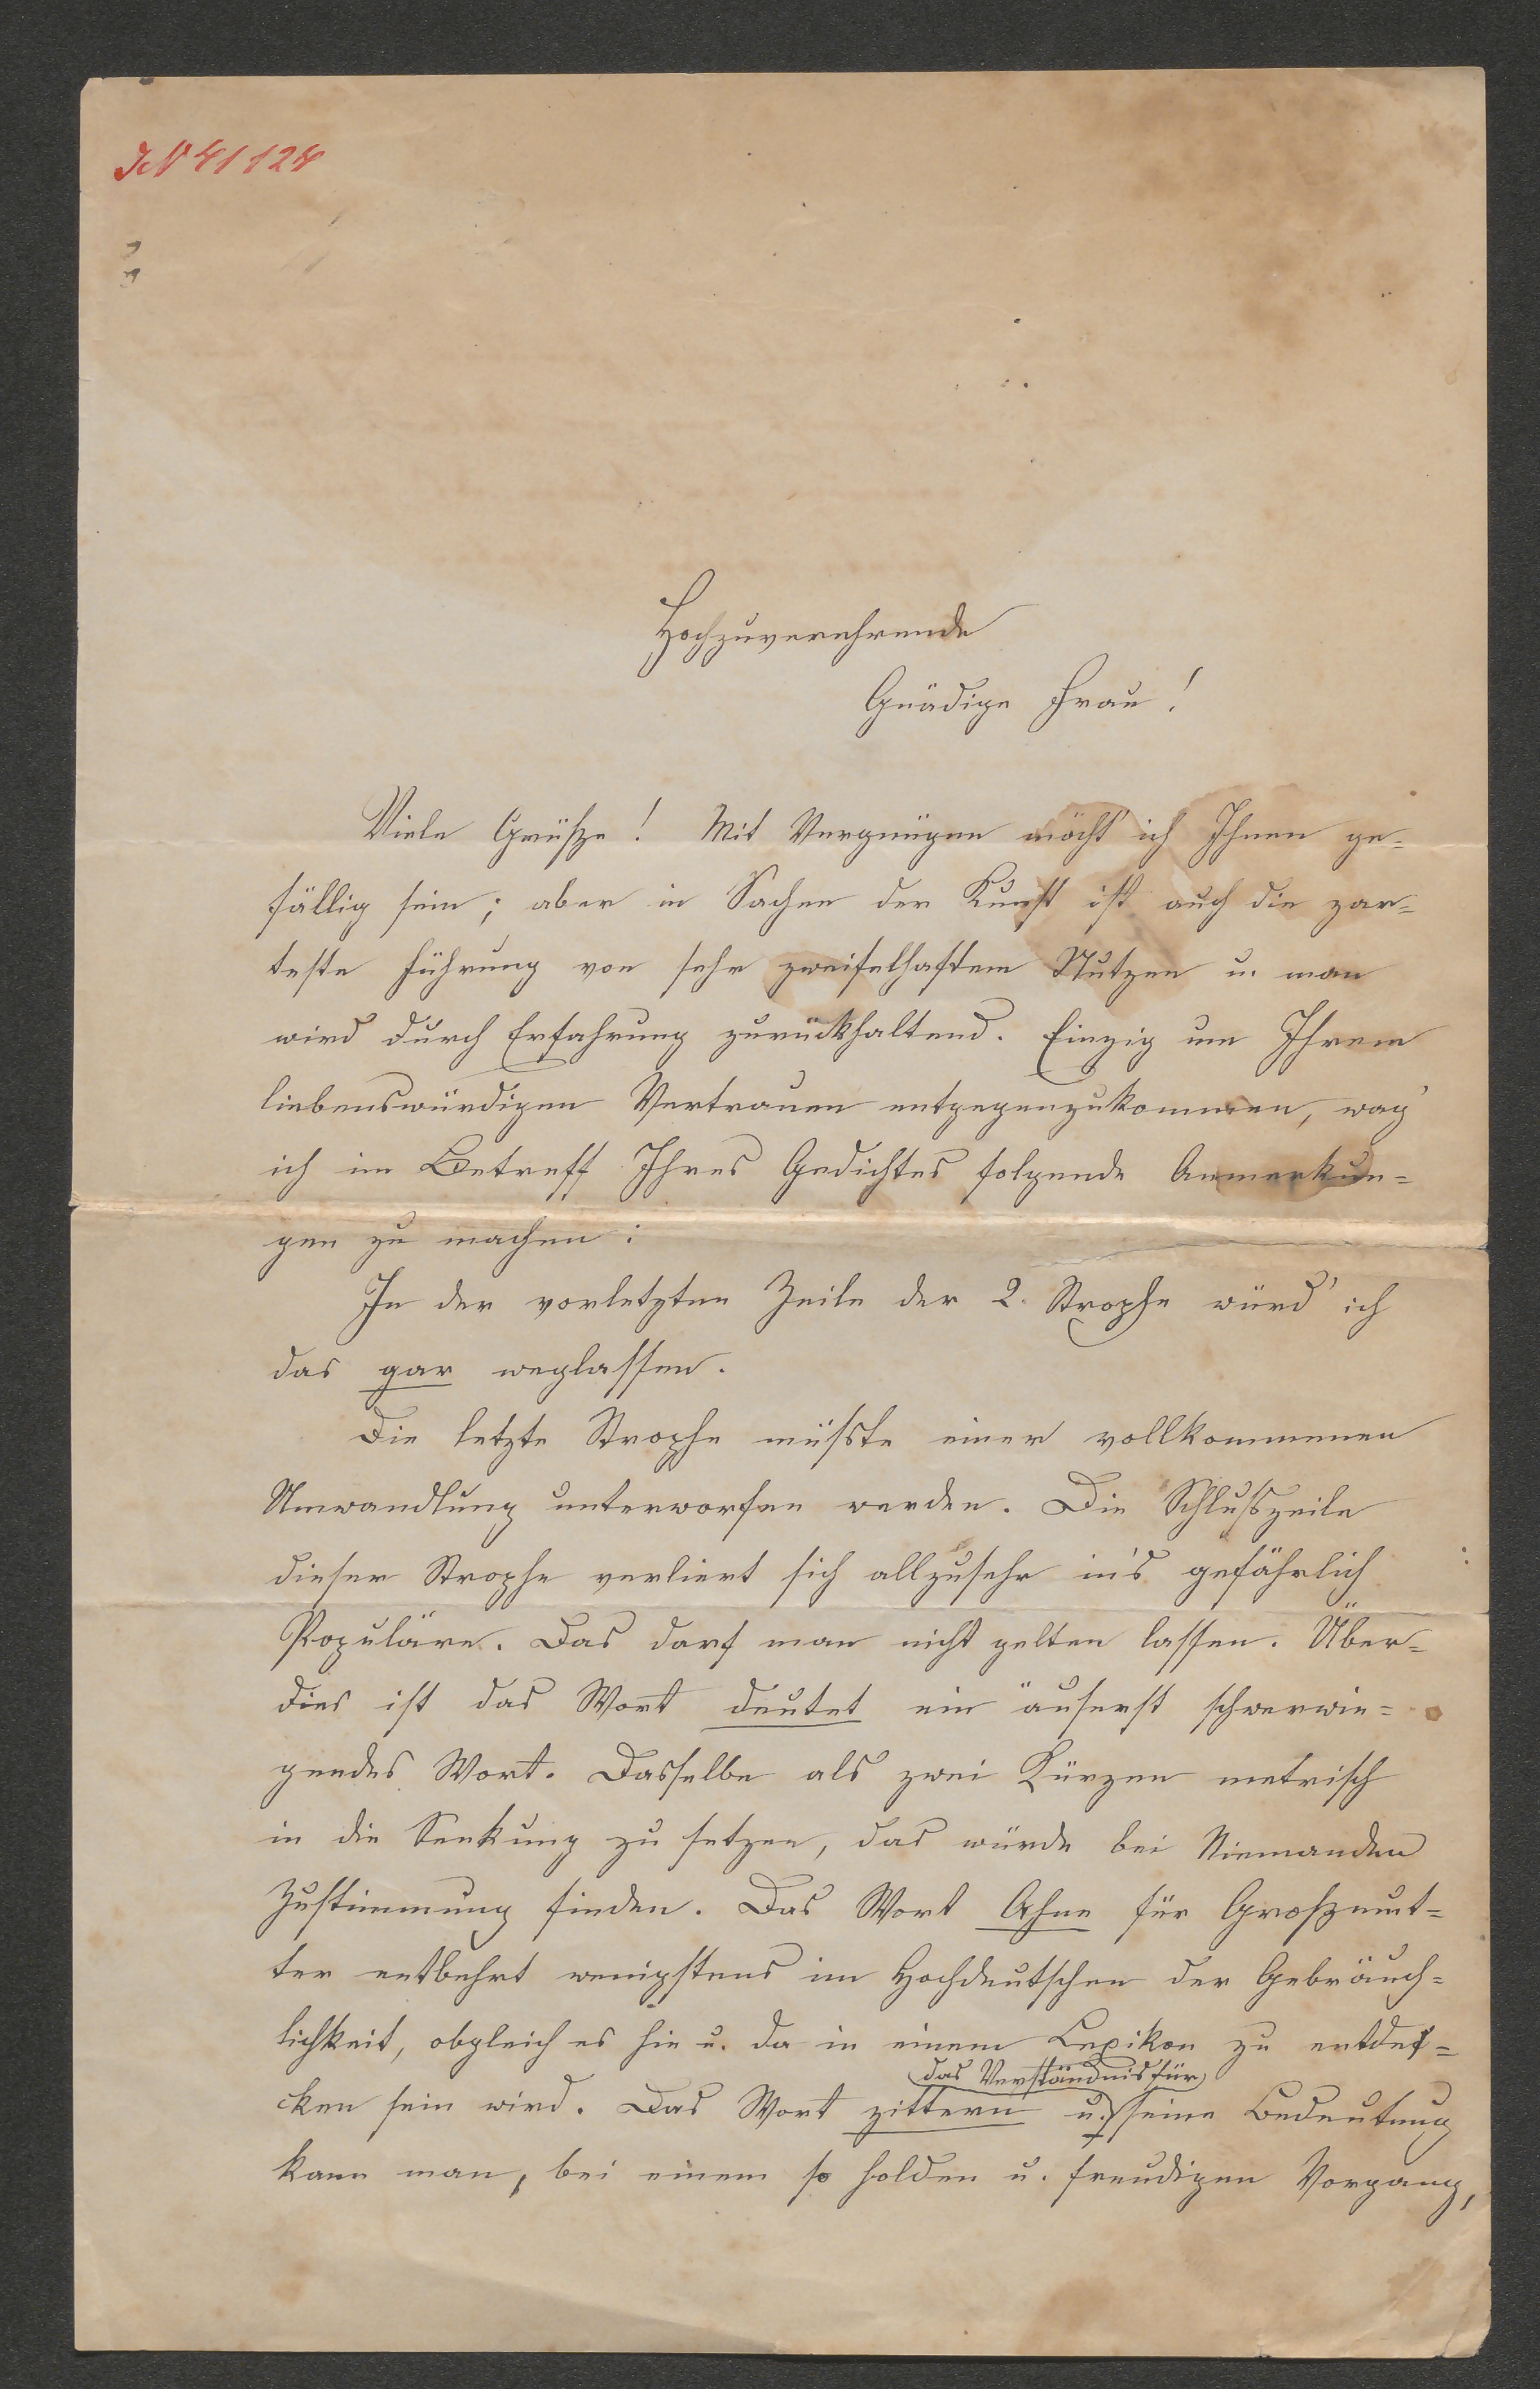 IN 41124
Hochzuverehrende
Gnädige Frau!
Viele Grüsze! Mit Vergnügen möcht' ich Ihnen ge=
fällig sein; aber in Sachen der Kunst ist auch die zar=
teste Führung von sehr zweifelhaftem Nutzen u. man
wird durch Erfahrung zurückhaltend. Einzig um Ihrem
liebenswürdigen Vertrauen entgegenzukommen, wag'
ich im Betreff Ihres Gedichtes folgende Anmerkun=
gen zu machen:
In der vorletzten Zeile der 2. Strophe würd' ich
das gar weglassen.
Die letzte Strophe müsste einer vollkommenen
Umwandlung unterworfen werden. Die Schlußzeile
dieser Strophe verliert sich allzusehr in's gefährlich
Populäre. Das darf man nicht gelten lassen. Über=
dies ist das Wort deutet ein äuserst schwerwie=
gendes Wort. Dasselbe als zwei Kürzen metrisch
in die Senkung zu setzen, das würde bei Niemanden
Zustimmung finden. Das Wort Ahne für Groszmut=
ter entbehrt wenigstens im Hochdeutschen der Gebräuch=
lichkeit, obgleich es hie u. da in einem Lexikon zu entdek=
das Verständnis für
cken sein wird. Das Wort zittern u. seine Bedeutung
kann man, bei einem so holden u. freudigen Vorgang,